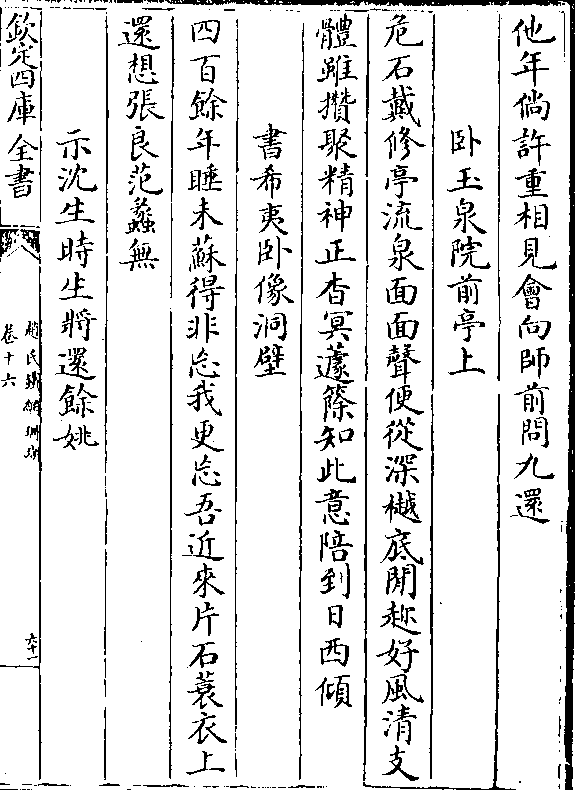 他年倘許重相見會向師前問九還
卧玉泉院前亭上
危石戴修亭流泉面面聲便從深樾底閒趂好風清支
體雖攢聚精神正杳冥蘧篨知此意陪到日西傾
書希夷卧像洞壁
四百餘年睡未蘇得非忘我更忘吾近來片石蓑衣上
還想張良范蠡無
示沈生時生將還餘姚
欽定四庫全書
趙氏鐵網珊瑚
卷十六
六十一